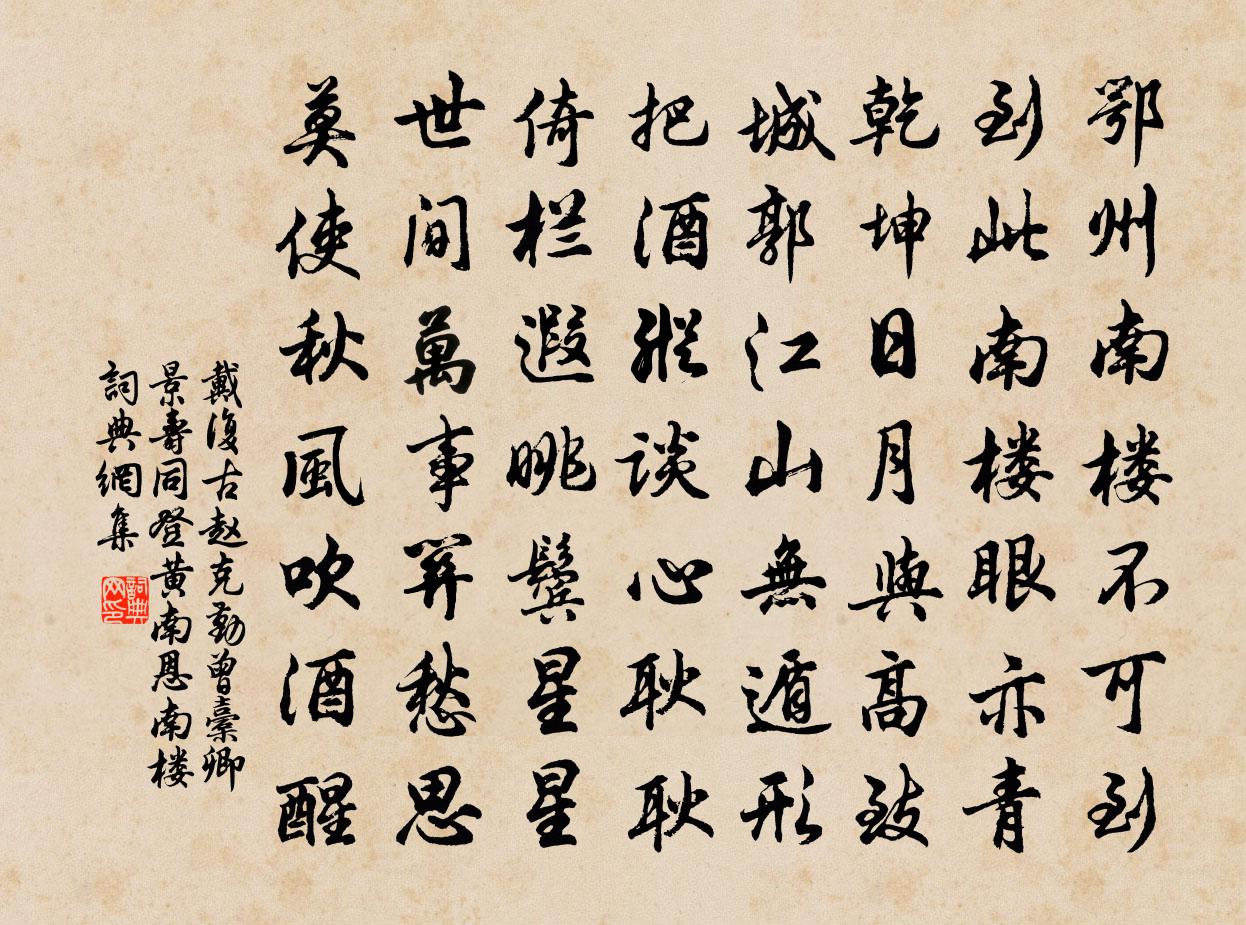 鄂州南楼不可到
到此南楼眼亦青
乾坤日月與高致
城郭江山無遁形
把酒縱谈心耿耿
倚栏遐眺鬓星星
世间萬事笄愁思
莫使秋風吹酒醒
戴復古赵克勤曾橐卿
景壽同登黄南恩南楼
詞典網集
詞典网印